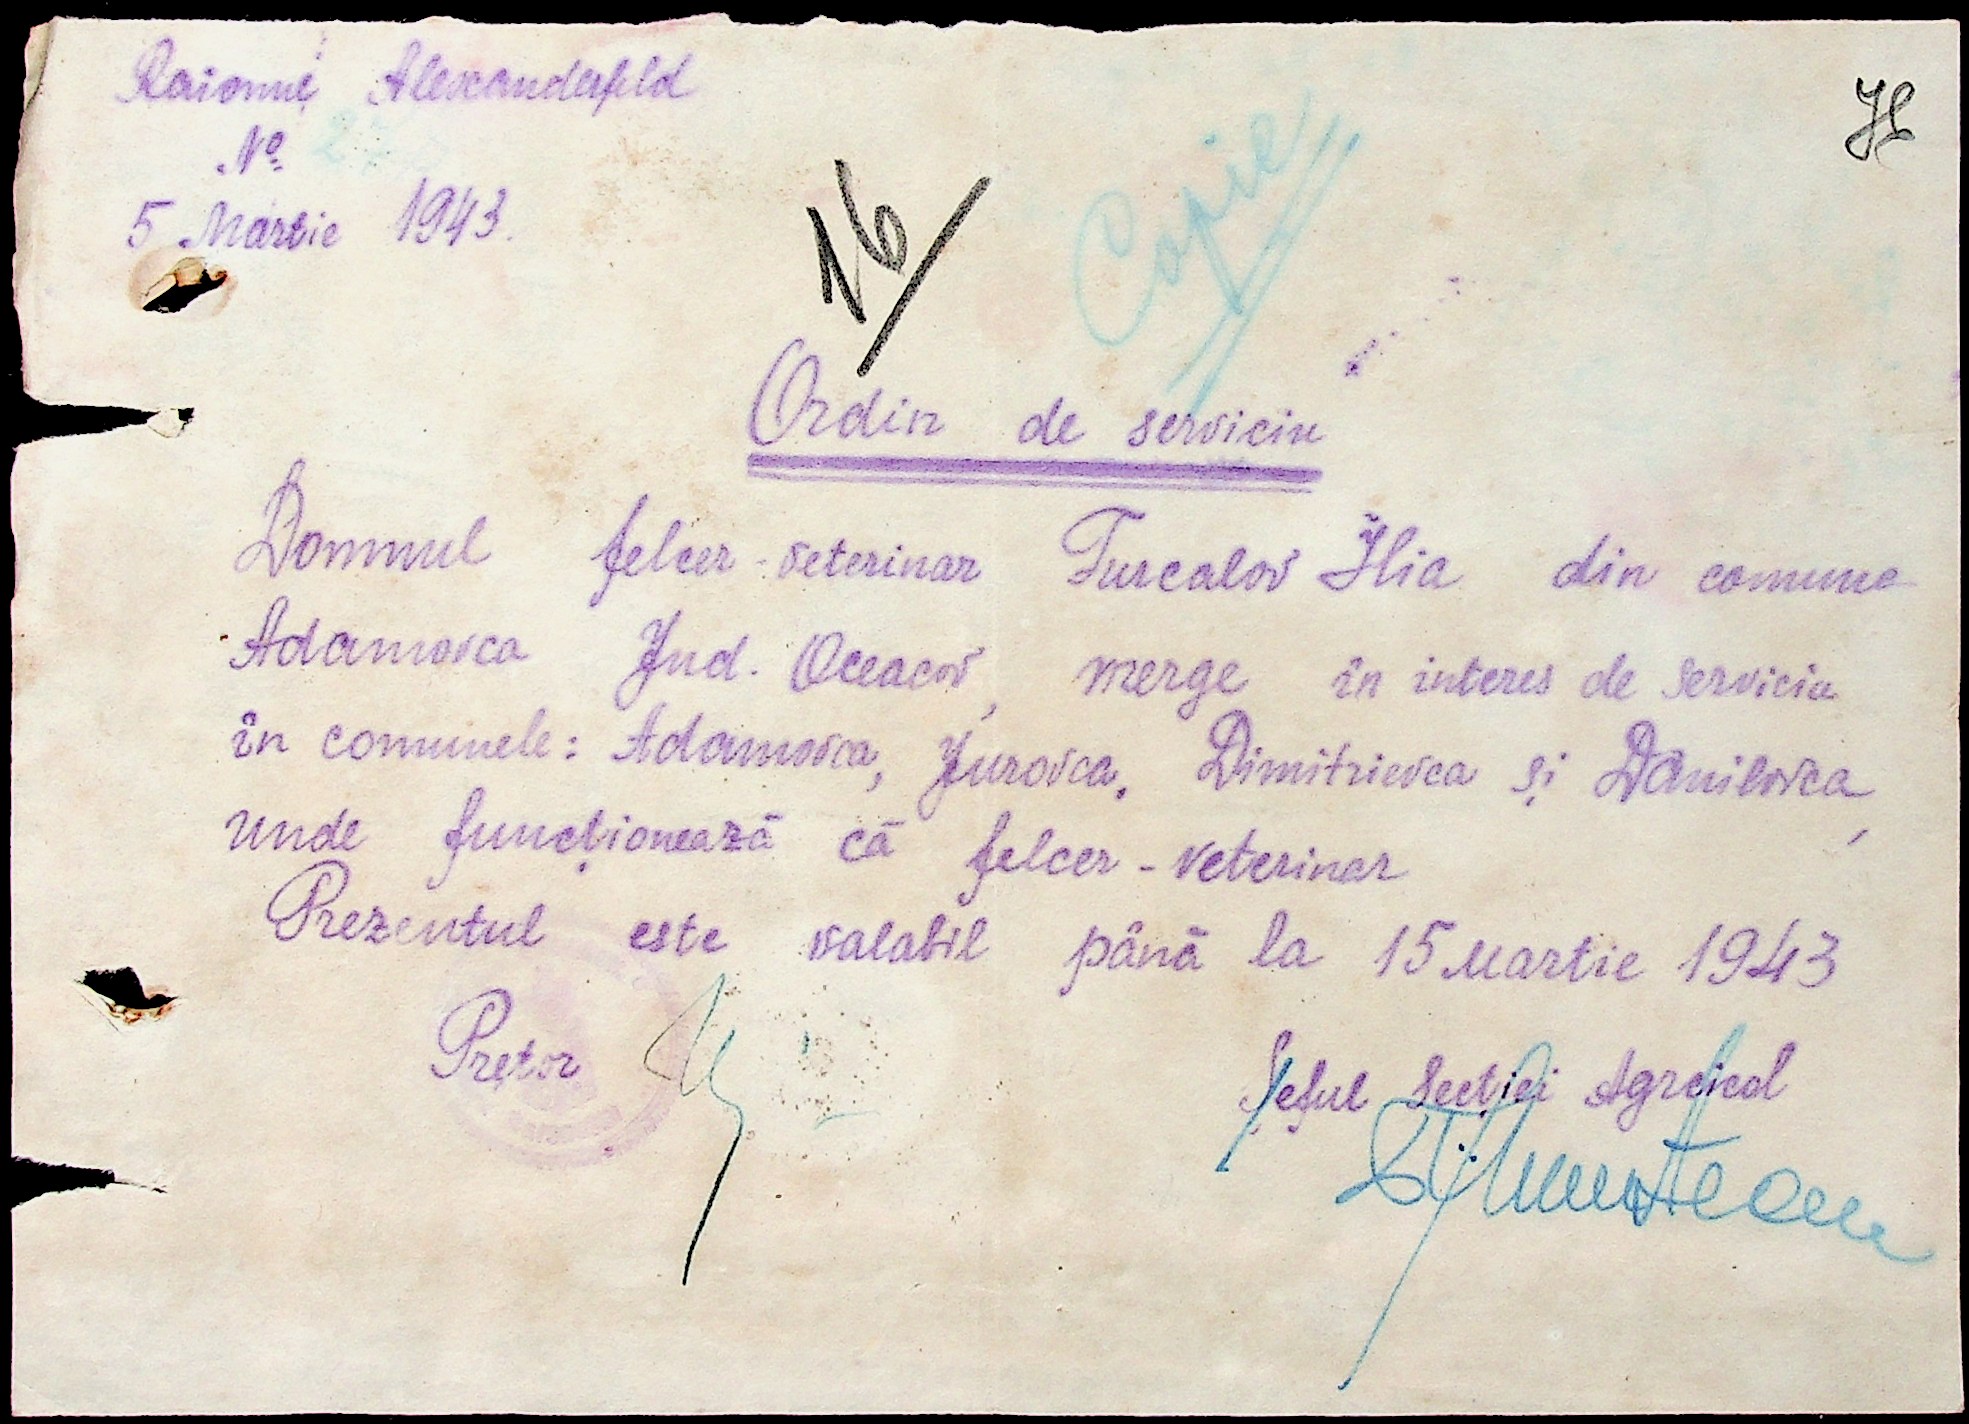 Raionul Alexanderfeld
№ 2
5 Martie 1943.
16
Copie
Ordin de serviciu
Domnul felcer-veterinar Turcalov Ilia din comuna
Adamovca Jud. Oceacov, merge în interes de serviciu
în comunele: Adamovca, Jurovca, Dimitrievca și Danilovca,
unde funcționează că felcer-veterinar
Prezentul este valabil până la 15 Martie 1943
Pretor
Șeful Secției Agricol